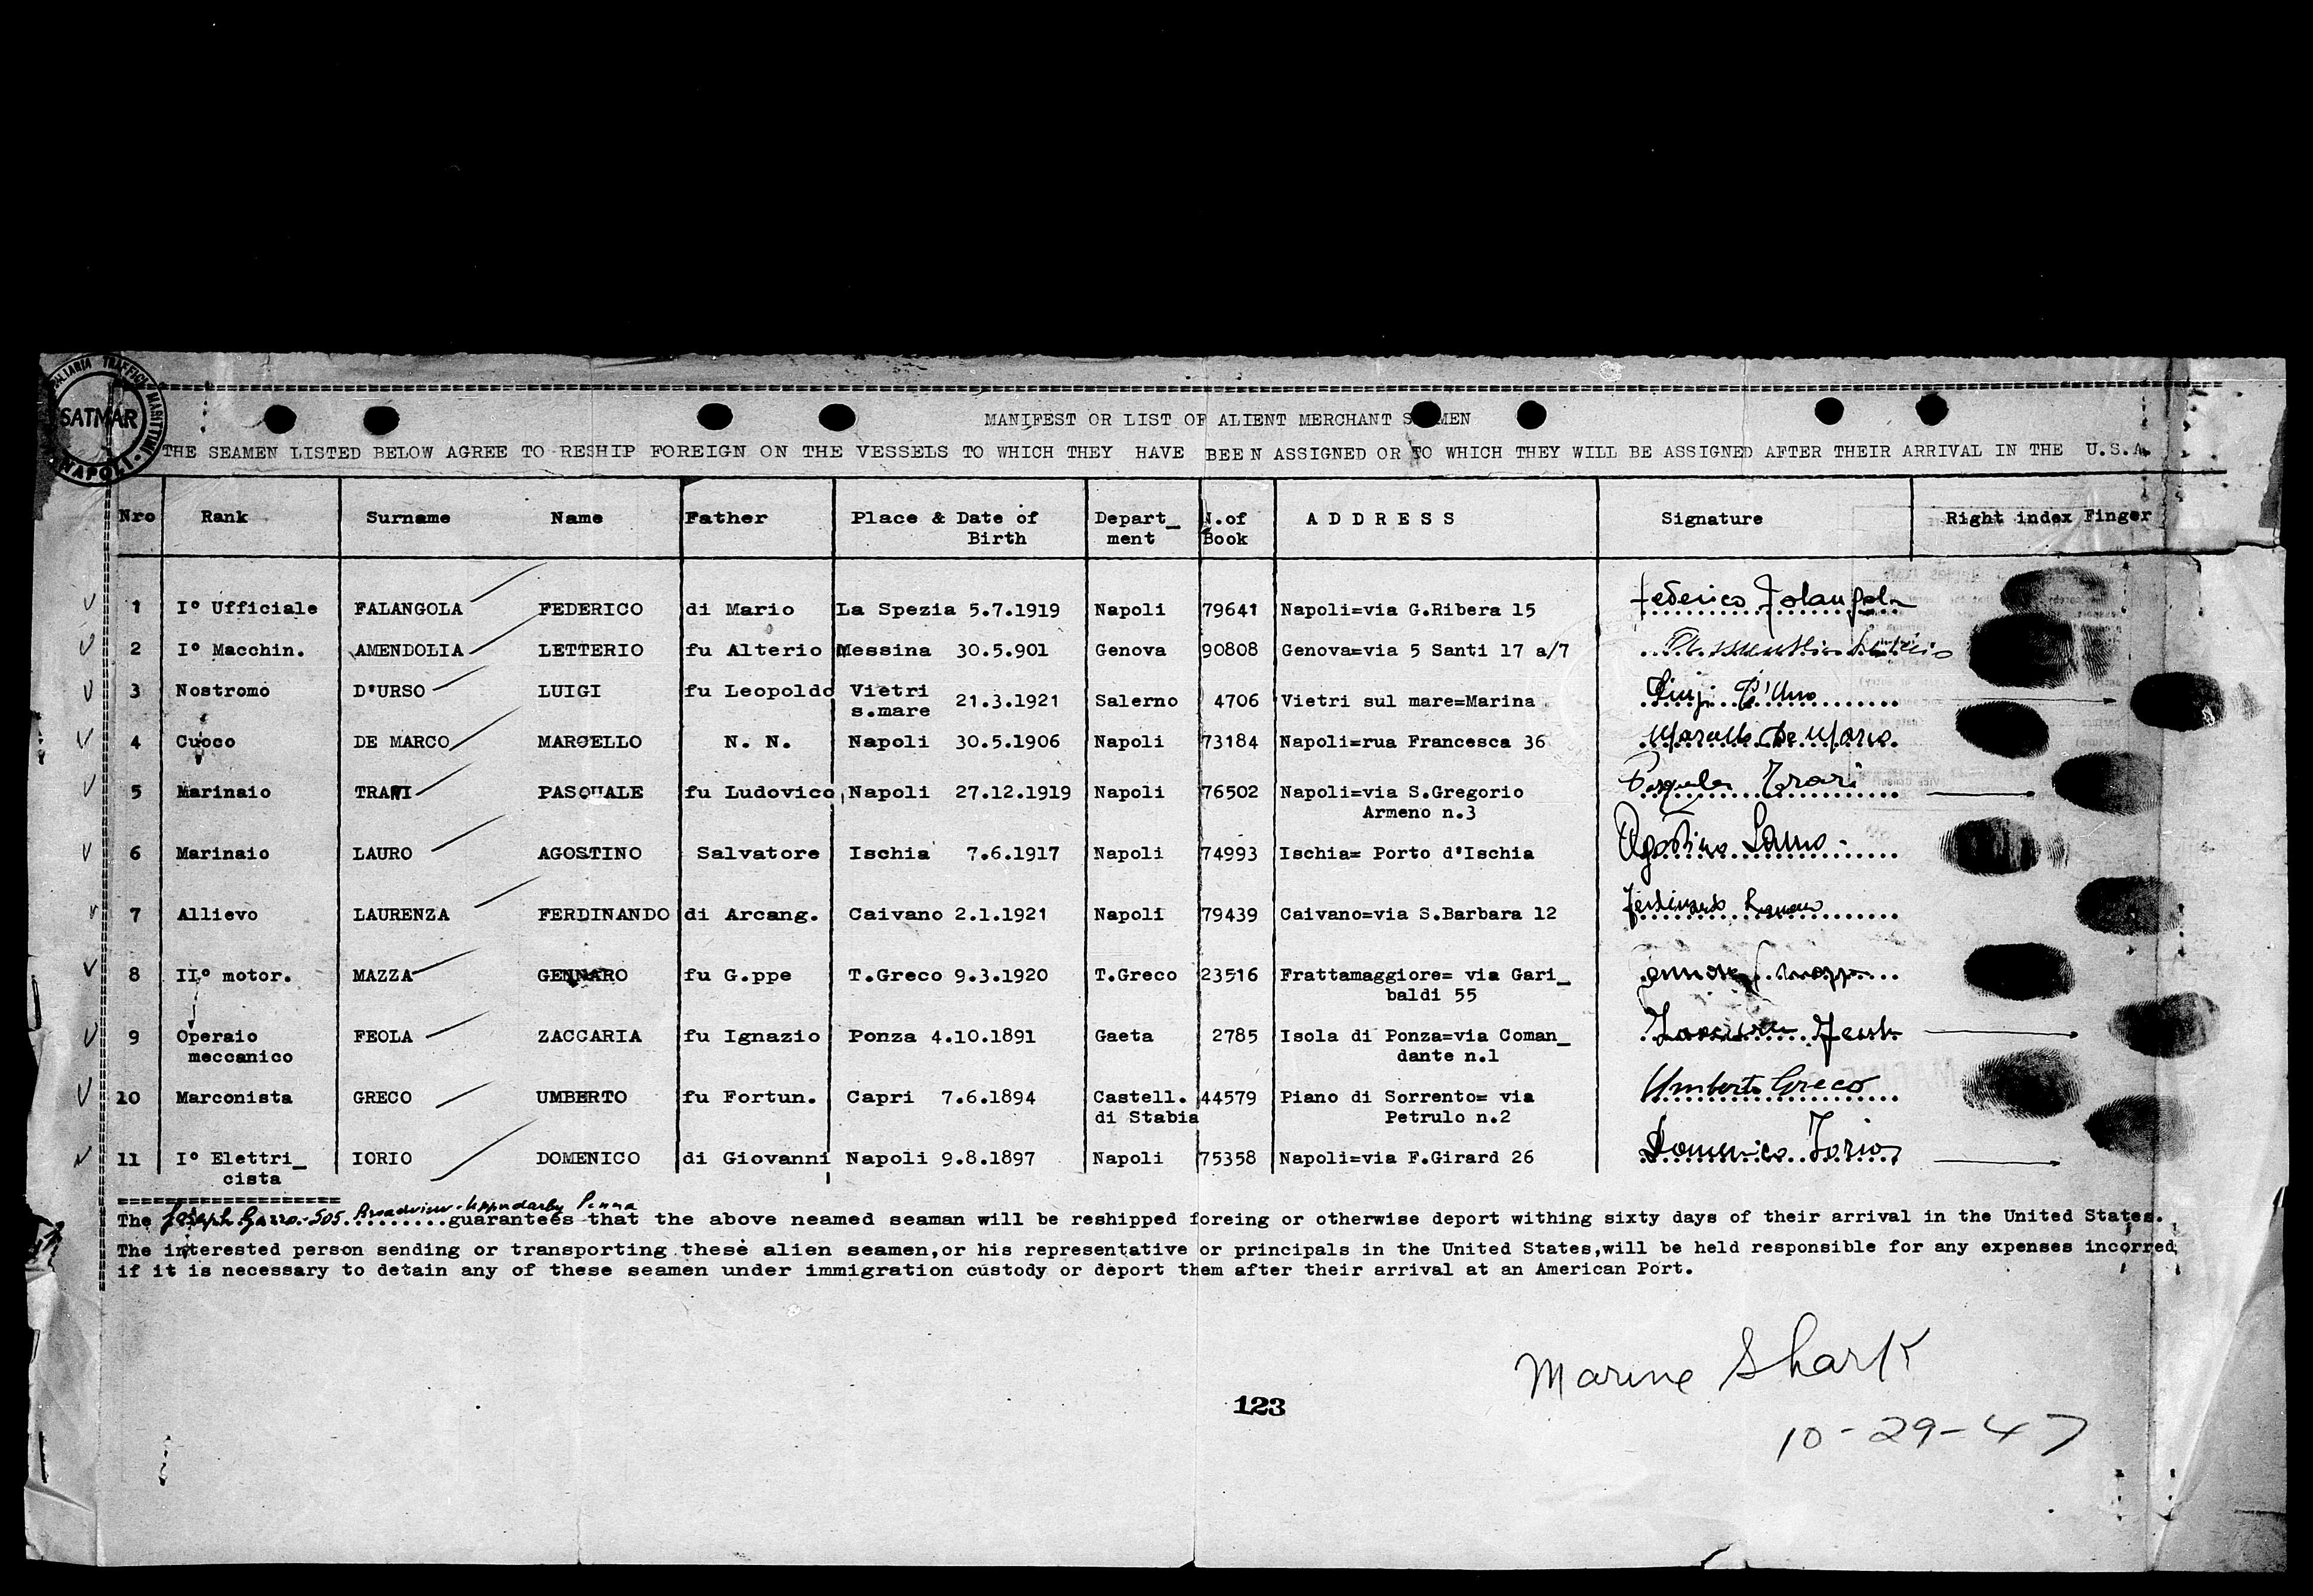 AUSILIARIA TRAFFICI MARITTIMI
SATMAR
NAPOLI
MANIFEST OR LIST OF ALIENT MERCHANT S MEN
THE SEAMEN LISTED BELOW AGREE TO RESHIP FOREIGN ON THE VESSELS TO WHICH THEY HAVE BEEN ASSIGNED OR TO WHICH THEY WILL BE ASSIGNED AFTER THEIR ARRIVAL IN THE U.S.A.
Nro Rank Surname Name Father Place & Date of Depart_ N.of A D D R E S S Signature Right index Finger
Birth ment Book
1 I° Ufficiale FALANGOLA FEDERICO di Mario La Spezia 5.7.1919 Napoli 79641 Napoli=via G.Ribera 15 Federico Falangola
2 I° Macchin. AMENDOLIA LETTERIO fu Alterio Messina 30.5.901 Genova 90808 Genova=via 5 Santi 17 a/7
3 Nostromo D'URSO LUIGI fu Leopoldo Vietri 21.3.1921 Salerno 4706 Vietri sul mare=Marina Luigi D'Urso
s.mare
4 Cuoco DE MARCO MARCELLO N. N. Napoli 30.5.1906 Napoli 73184 Napoli=rua Francesca 36 Marcello De Marco
5 Marinaio TRANI PASQUALE fu Ludovico Napoli 27.12.1919 Napoli 76502 Napoli=via S.Gregorio
Armeno n.3
6 Marinaio LAURO AGOSTINO Salvatore Ischia 7.6.1917 Napoli 74993 Ischia= Porto d'Ischia Agostino Lauro
7 Allievo LAURENZA FERDINANDO di Arcang. Caivano 2.1.1921 Napoli 79439 Caivano=via S.Barbara 12
8 II° motor. MAZZA GENNARO fu G.ppe T.Greco 9.3.1920 T.Greco 23516 Frattamaggiore= via Gari_
baldi 55
9 Operaio FEOLA ZACCARIA fu Ignazio Ponza 4.10.1891 Gaeta 2785 Isola di Ponza=via Coman_
meccanico dante n.1
10 Marconista GRECO UMBERTO fu Fortun. Capri 7.6.1894 Castell. 44579 Piano di Sorrento= via Umberto Greco
di Stabia Petrulo n.2
11 I° Elettri_ IORIO DOMENICO di Giovanni Napoli 9.8.1897 Napoli 75358 Napoli=via F.Girard 26 Domenico Iorio
cista
The Joseph Gazzo-505 Broadview-Uppndarby Penna guarantees that the above neamed seaman will be reshipped foreing or otherwise deport withing sixty days of their arrival in the United States.
The interested person sending or transporting these alien seamen,or his representative or principals in the United States,will be held responsible for any expenses incorred,
if it is necessary to detain any of these seamen under immigration custody or deport them after their arrival at an American Port.
Marine Shark
123
10-29-47